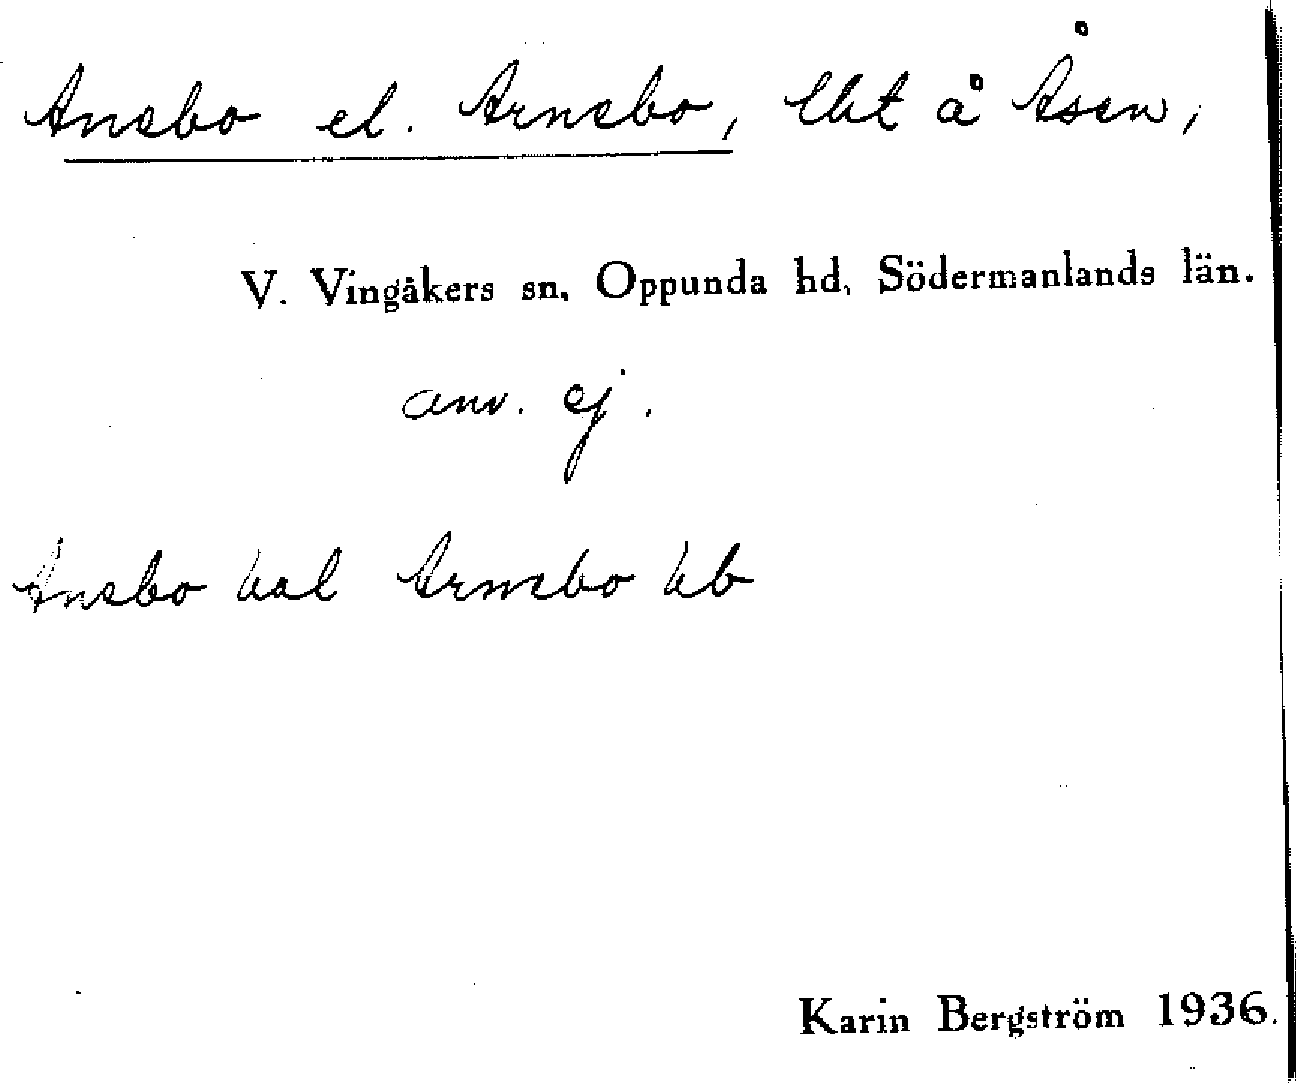 Ansbo el. Arnsbo, lht å Åsen,
V. Vingåkers sn, Oppunda hd, Södermanlands län.
anv. ej.
Ansbo Arnsbo hb
Karin Bergström 1936.